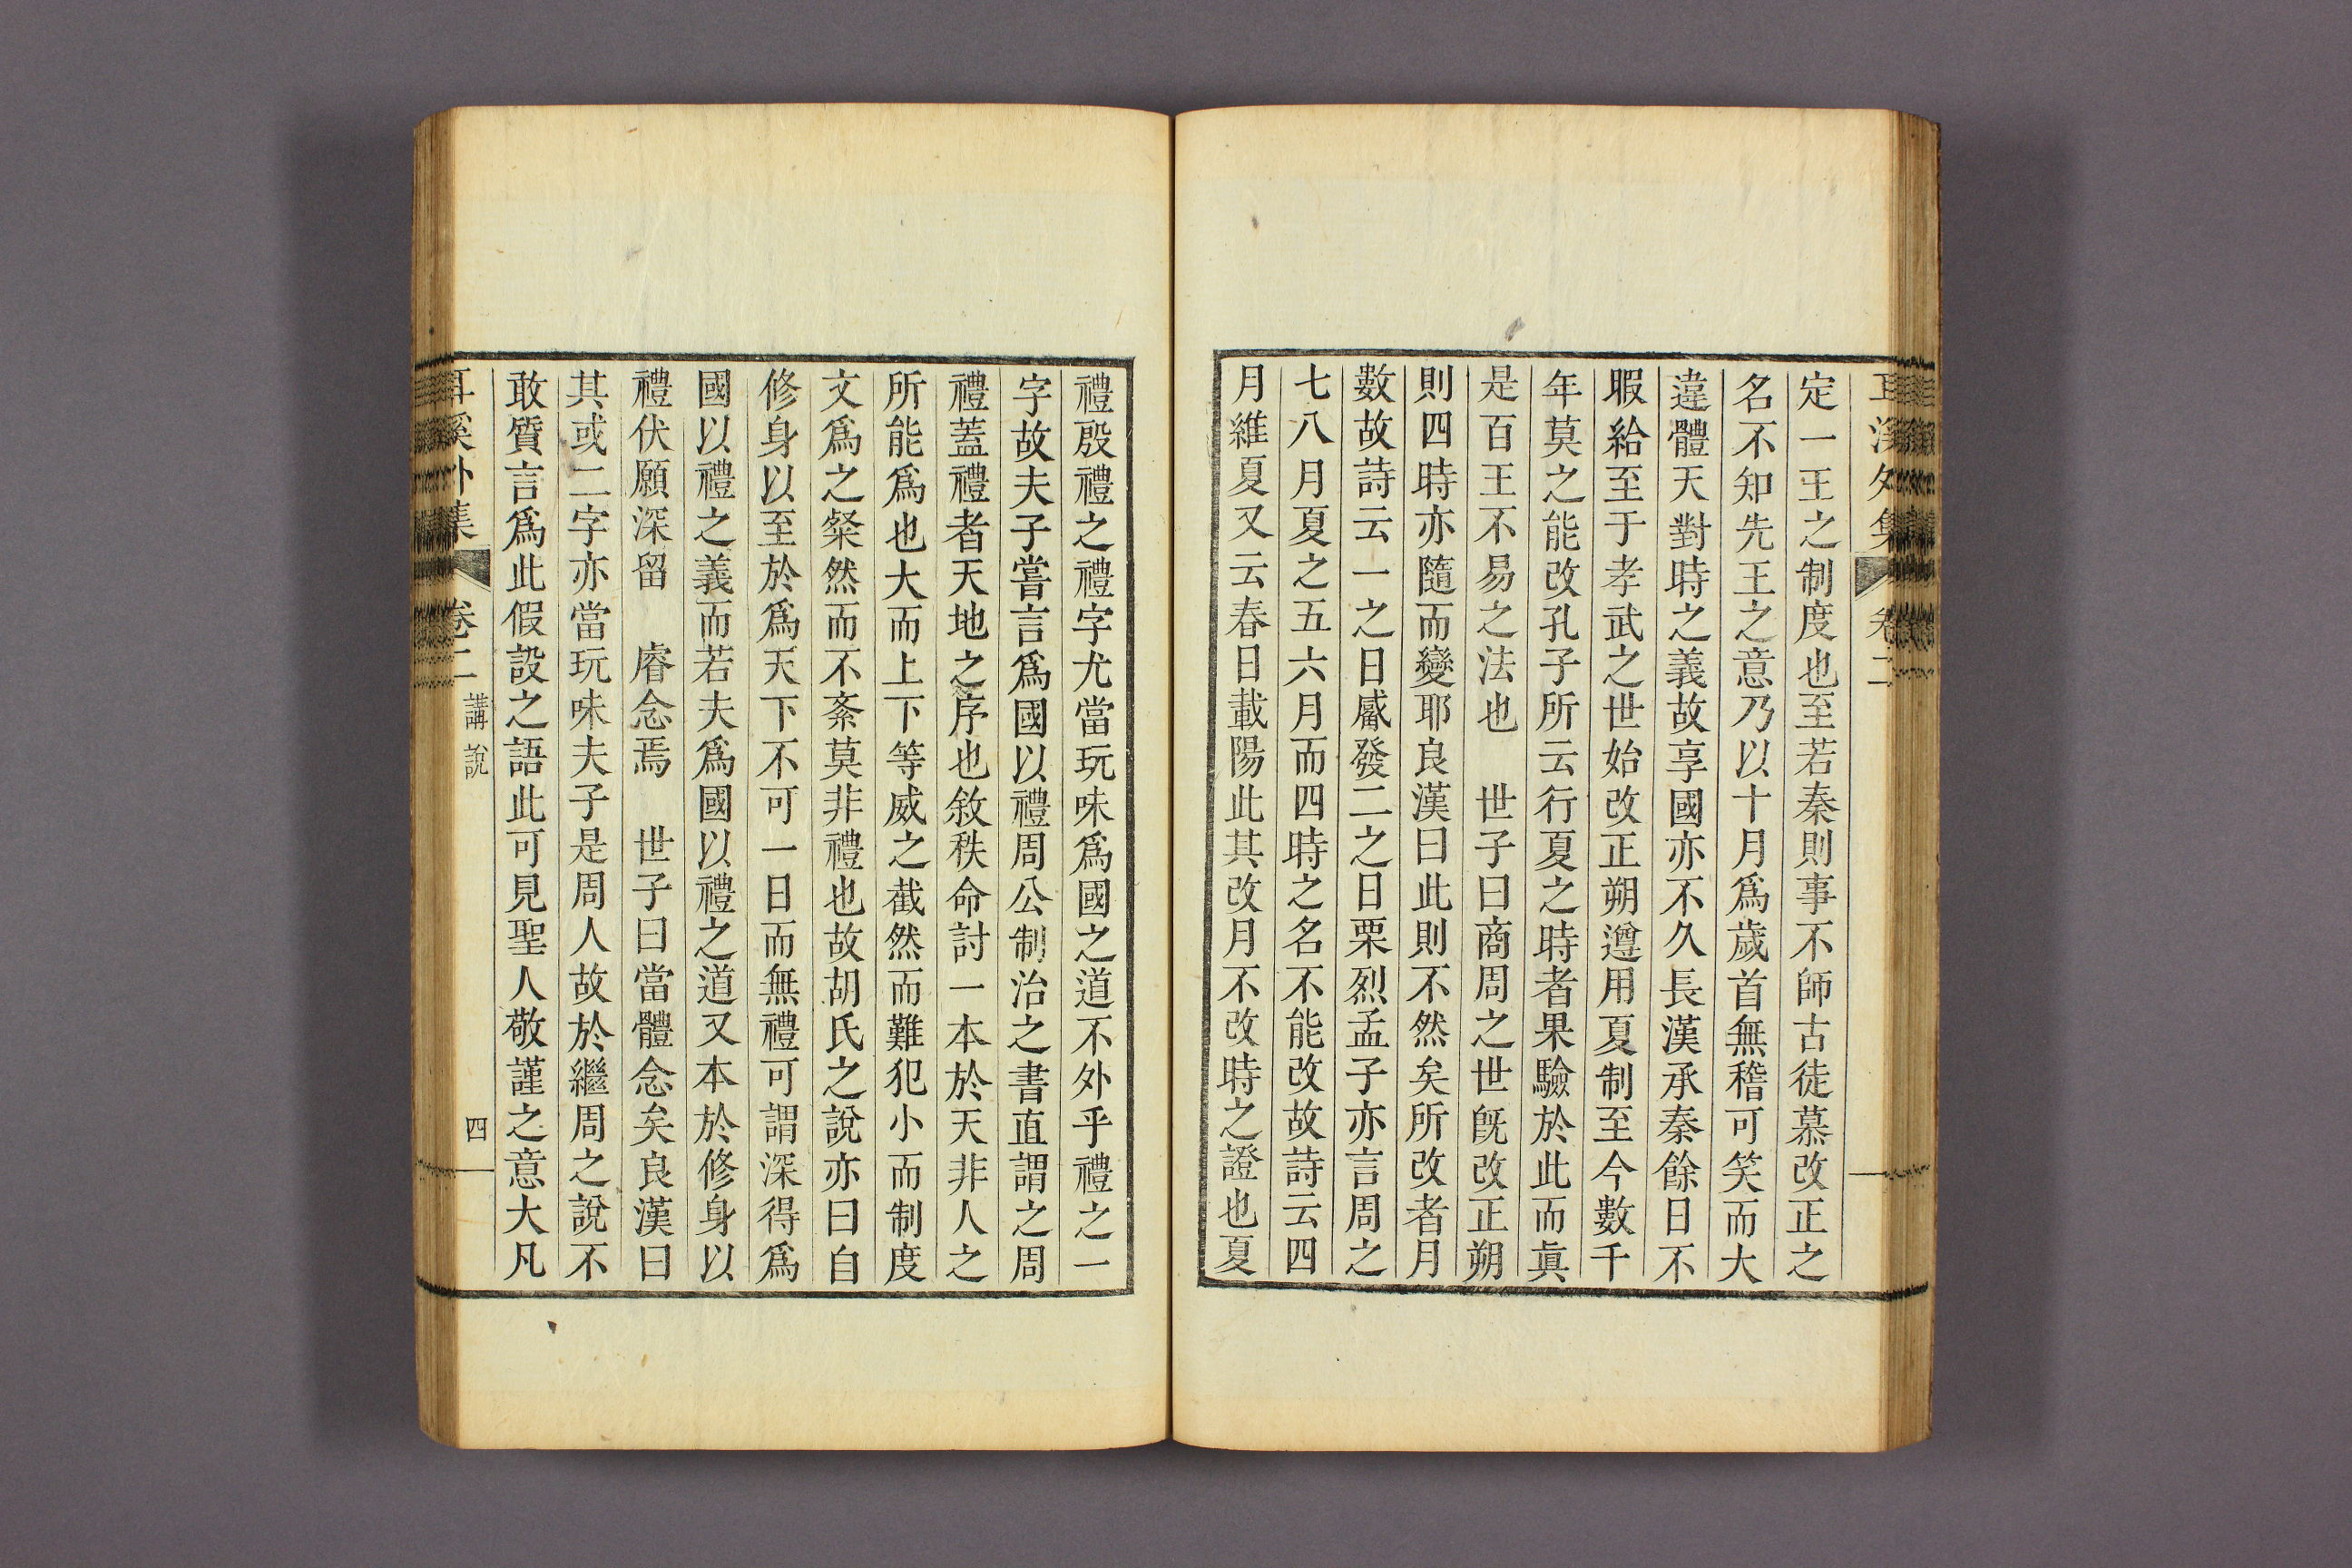 耳溪外集 卷二
定一王之制度也至若秦則事不師古徒慕改正之
名不知先王之意乃以十月爲歲首無稽可笑而大
違體天對時之義故享國亦不久長漢承秦餘日不
暇給至于孝武之世始改正朔遵用夏制至今數千
年莫之能改孔子所云行夏之時者果驗於此而眞
是百王不易之法也 世子曰商周之世旣改正朔
則四時亦隨而變耶良漢曰此則不然矣所改者月
數故詩云一之日觱發二之日栗烈孟子亦言周之
七八月夏之五六月而四時之名不能改故詩云四
月維夏又云春日載陽此其改月不改時之證也夏
禮殷禮之禮字尤當玩味爲國之道不外乎禮之一
字故夫子嘗言爲國以禮周公制治之書直謂之周
禮蓋禮者天地之序也敘秩命討一本於天非人之
所能爲也大而上下等威之截然而難犯小而制度
文爲之粲然而不紊莫非禮也故胡氏之說亦曰自
修身以至於爲天下不可一日而無禮可謂深得爲
國以禮之義而若夫爲國以禮之道又本於修身以
禮伏願深留 睿念焉 世子曰當體念矣良漢曰
其或二字亦當玩味夫子是周人故於繼周之說不
敢質言爲此假設之語此可見聖人敬謹之意大凡
耳溪外集 卷二 講說 四